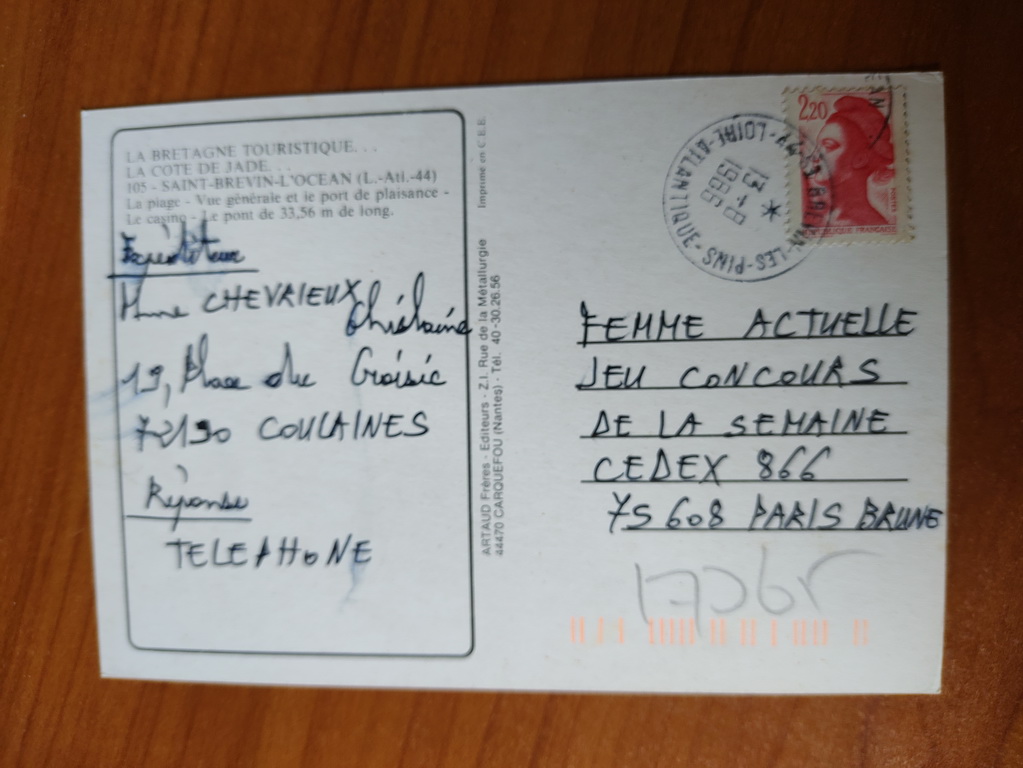 LA BRETAGNE TOURISTIQUE. . .
LA COTE DE JADE. . .
105 - SAINT-BREVIN-L'OCEAN (L.-Atl.-44)
La plage - Vue générale et le port de plaisance -
Le casino - Le pont de 33,56 m de long.
Expéditeur
Mme CHEVRIEUX
Ghislaine
19, Place du Croisic
72190 COULAINES
Réponse
TELEPHONE
Imprimé en C.E.E.
ARTAUD Frères - Editeurs - Z.I. Rue de la Métallurgie
44470 CARQUEFOU (Nantes) - Tél. 40-30.26.56
2,20
REPUBLIQUE FRANÇAISE
13 H
8 - 7
1986
LES-PINS
44 - LOIRE-ATLANTIQUE
FEMME ACTUELLE
JEU CONCOURS
DE LA SEMAINE
CEDEX 866
75608 PARIS BRUNE